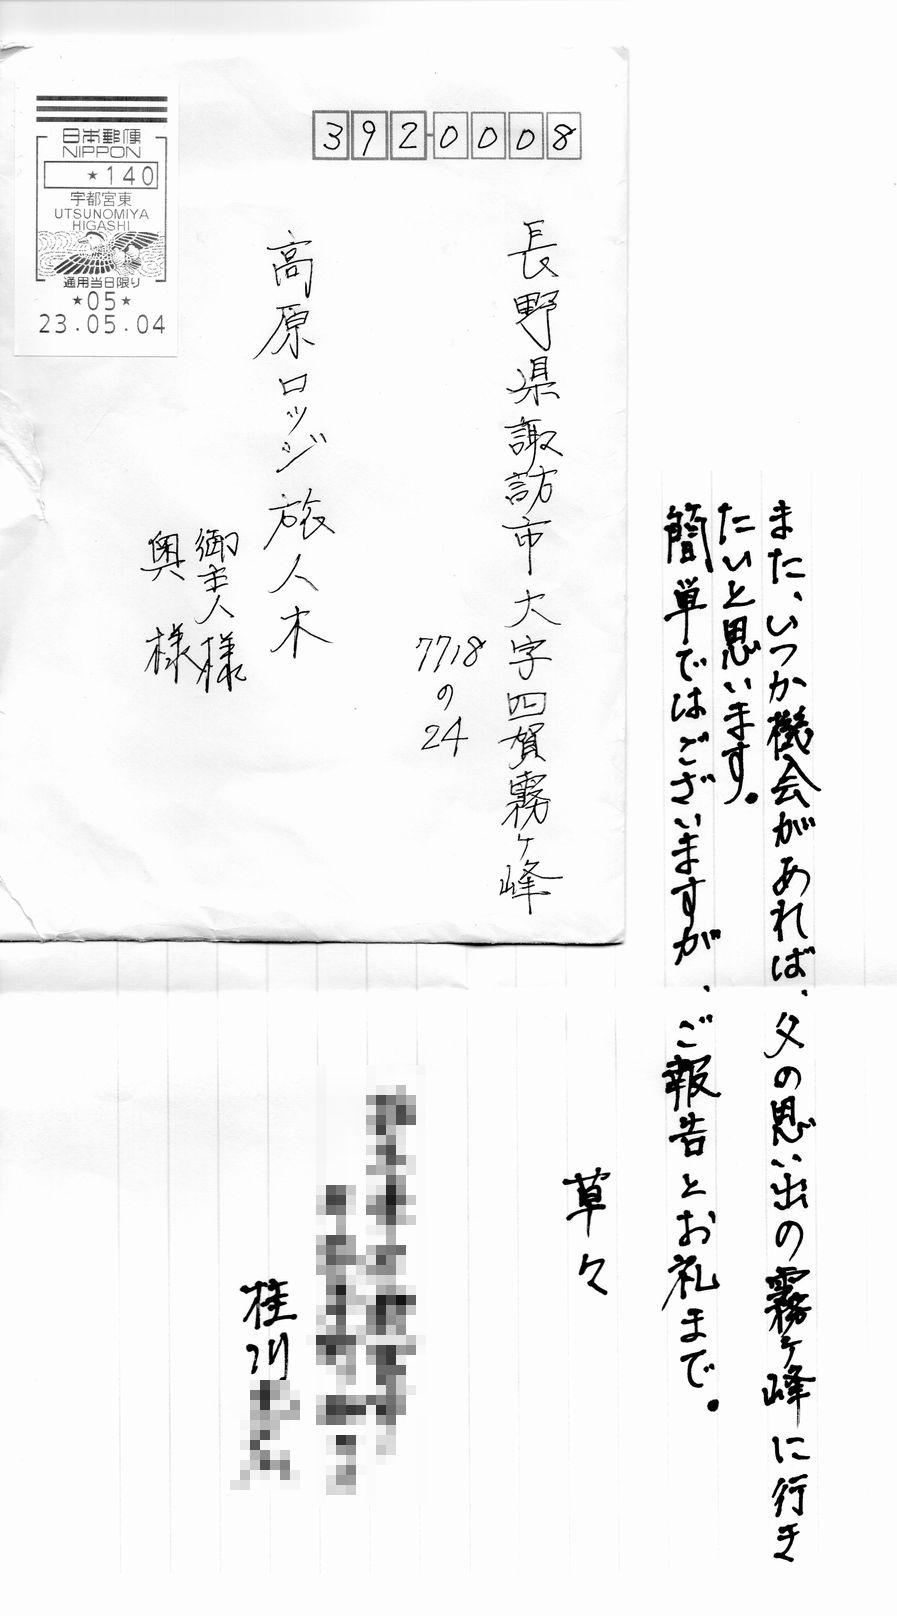 日本郵便
NIPPON
★140
宇都宮東
UTSUNOMIYA
HIGASHI
通用当日限り
★05★
23.05.04
392-0008
長野県諏訪市大字四賀霧ヶ峰
7718の24
高原ロッジ旅人木
御主人様
奥様
また、いつか機会があれば、父の思い出の霧ヶ峰に行き
たいと思います。
簡単ではございますが、ご報告とお礼まで。
草々
桂川